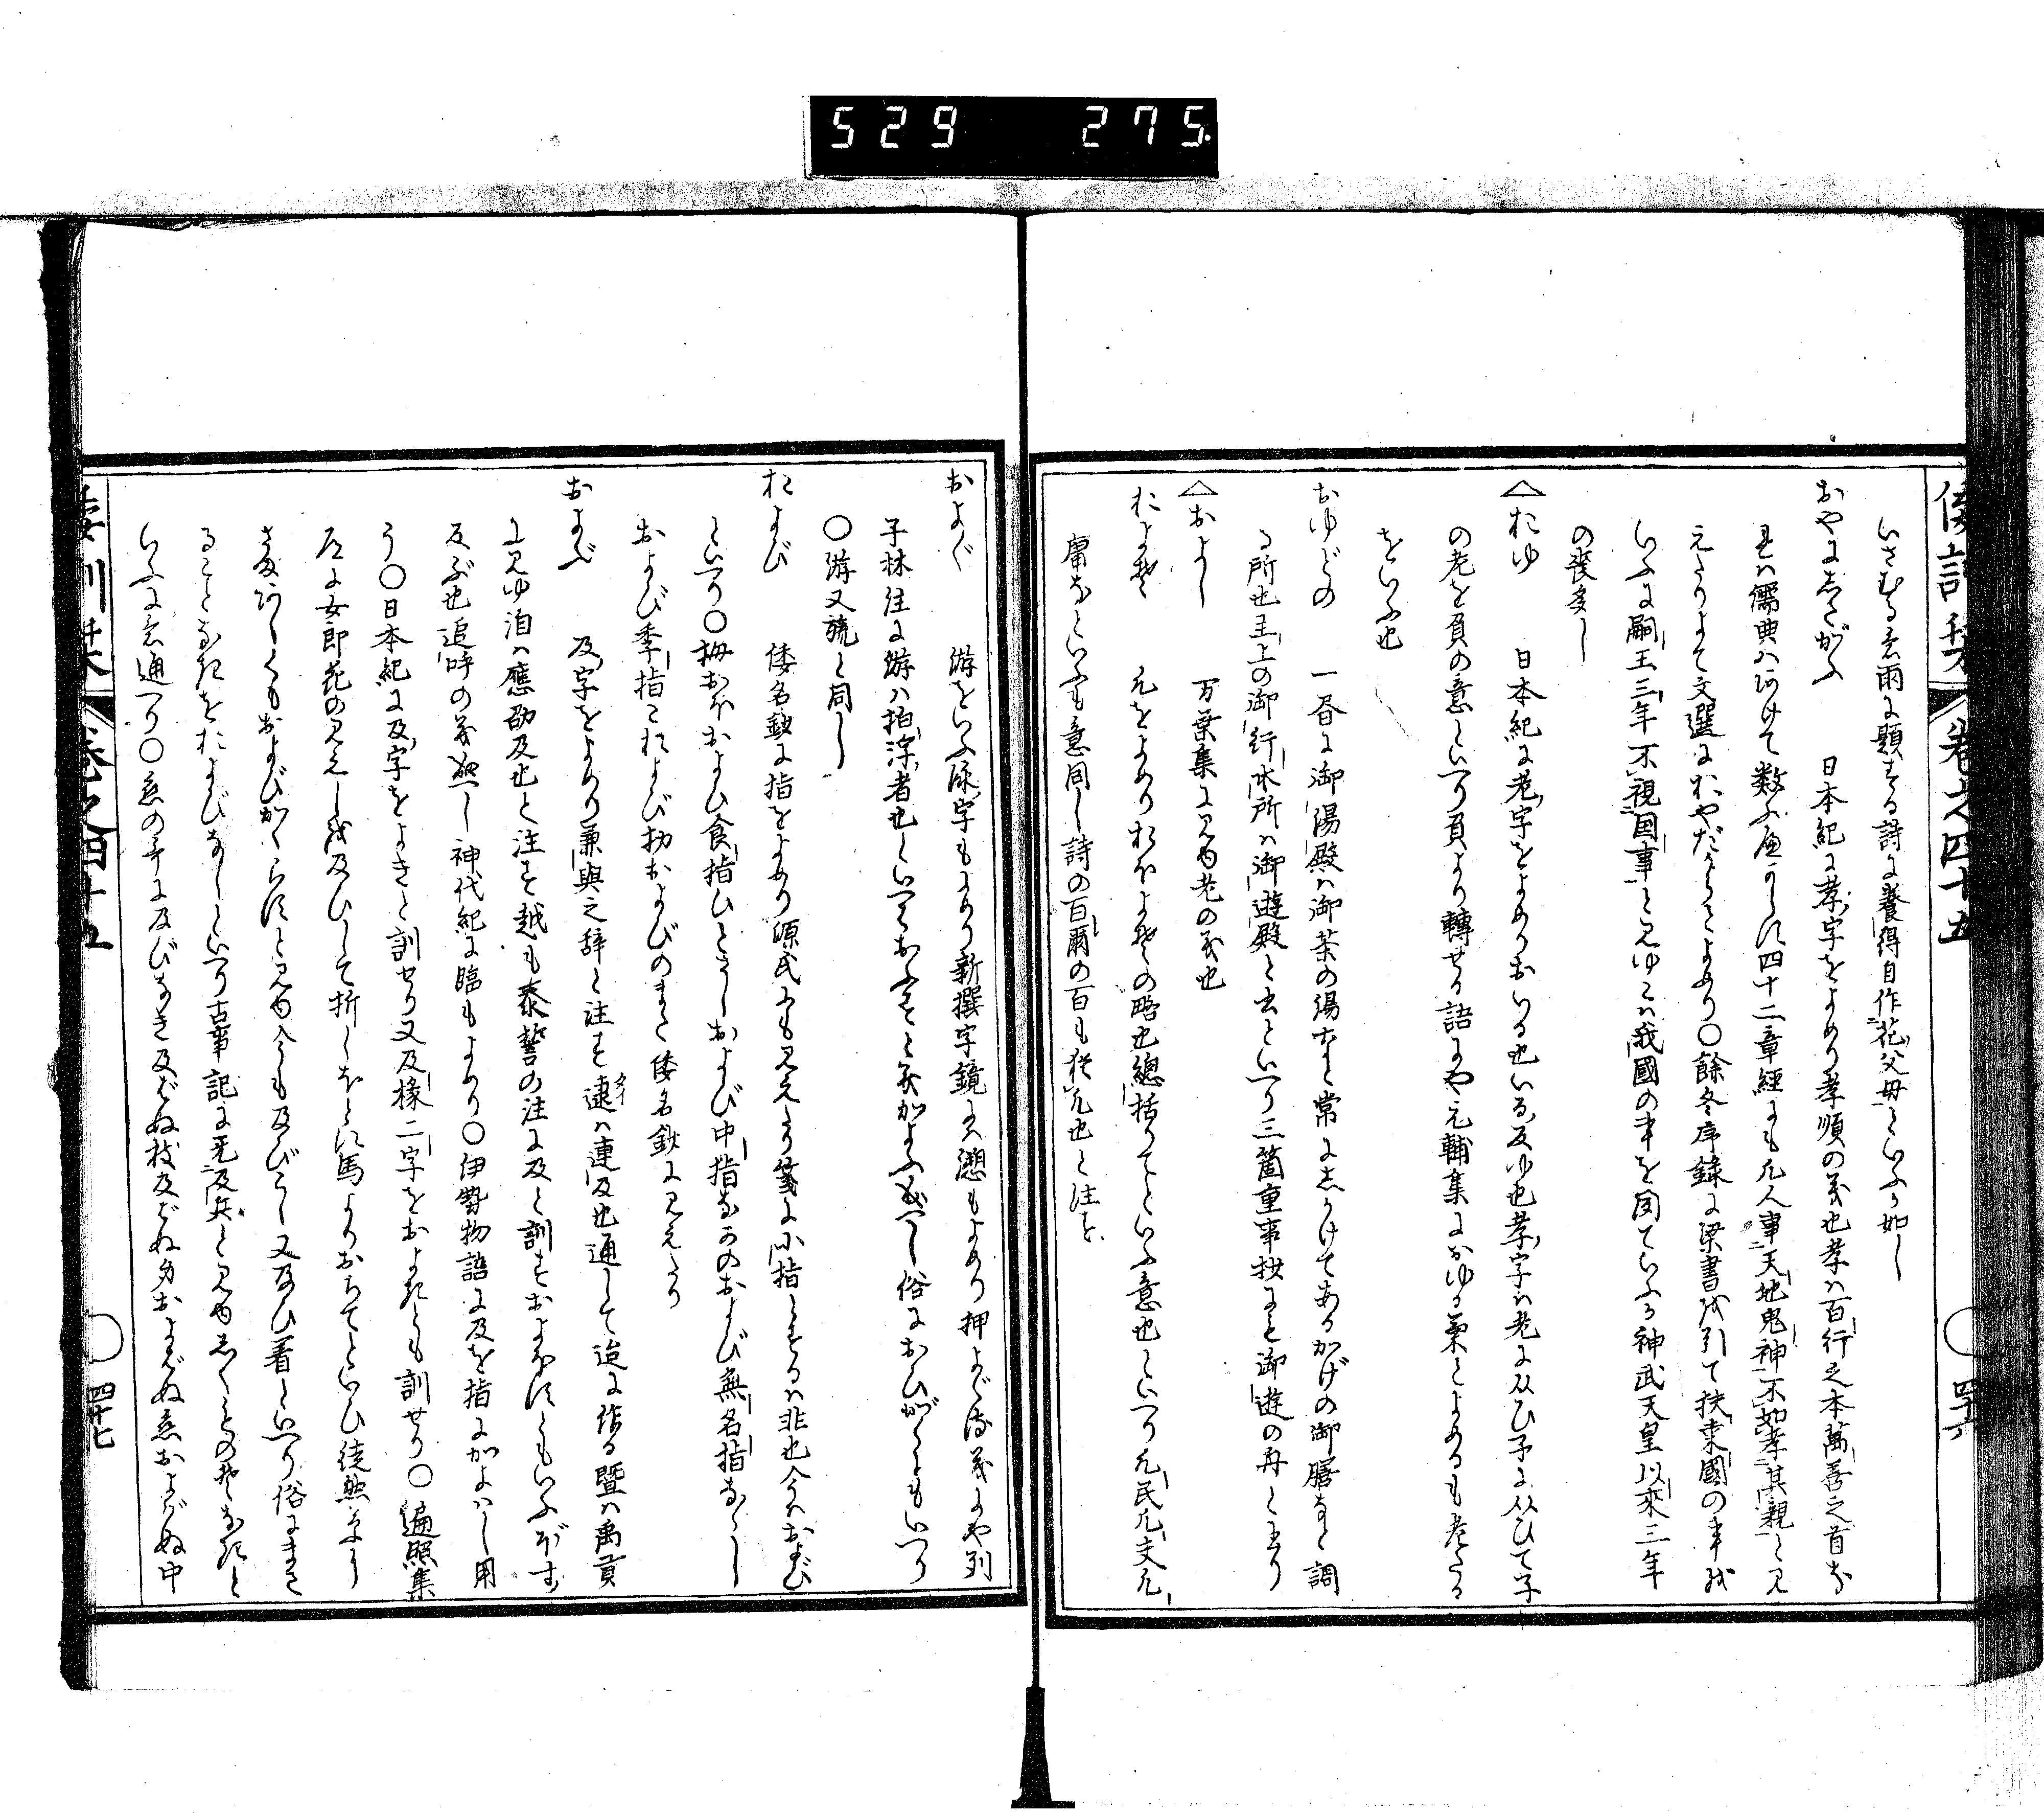 529 275.
いさむる意雨に題する詩に養得自作花父母といふか如し
おやにしたがふ 日本紀に孝字をよめり孝順の義也孝は百行之本萬善之首な
れは儒典はいけて数ふへからす四十二章經にも凡人事天地鬼神不如孝其親と見
えたりよて文選におやだからとよめり〇餘冬序録に梁書を引て扶桒國の事を
いふに嗣王三年不視国事と見ゆこは我國の事を聞ていふか神武天皇以来三年
の喪多し
△おゆ 日本紀に老字をよめりおいる也いる反ゆ也孝字は老に从ひ子に从ひて子
の老を負の意といへり負より轉せる語にや元輔集におゆる菊とよめるも老たる
をいふ也
おゆどの 一書に御湯殿は御茶の湯など常にしかけてあるかげの御膳など調
る所也主上の御行水所は御遊殿と云といへり三箇重事抄にも御遊の舟と有り
△およし 万葉集に見ゆ老の義也
およそ 凡をよめりおほよその略也總括りてといふ意也といへり凡民凡夫凡
庸なといふも意同し詩の百爾の百も猶凡也と注す
倭訓栞 卷之四十五 〇 四十六
およぐ 游をいふ泳字もよめり新撰字鏡に泅もよめり押よぐる義にや列
子林注に游は拍浮者也といへりおふすと義かよふ成へし俗におひがくともいへり
〇游又㳺と同し
および 倭名鈔に指をよめり源氏にも見えたり箋に小指とするは非也今はおよび
といへり〇拇おほおよひ食指ひとさしおよび中指なかのおよび無名指ななし
および季指こおよび扐およびのまた倭名鈔に見えたり
およぶ 及字をよめり兼與之辞と注す逮は連及也通して迨に作る曁は禹貢
に見ゆ洎は應劭及也と注す越も泰誓の注に及と訓すおよほすともいふぼす
反ぶ也追呼の義なるへし神代紀に臨もよめり〇伊勢物語に及を指にかよはし用
う〇日本紀に及字をよきと訓せり又及掾二字をおよすとも訓せり〇遍照集
に女郎花の見えしを及ひて折しほとに馬よりおちてといひ徒然草に
まだいくもおよびかくらすと見ゆ今も及びこし又及ひ着といへり俗にまさ
ることなきをおよびなしといへり古事記に无及兵と見ゆしくものそなきと
いふに意通へり〇恋の哥に及びなき及ばぬ枝及ばぬ身およばぬ恋およばぬ中
倭訓栞 卷之四十五 〇 四十七